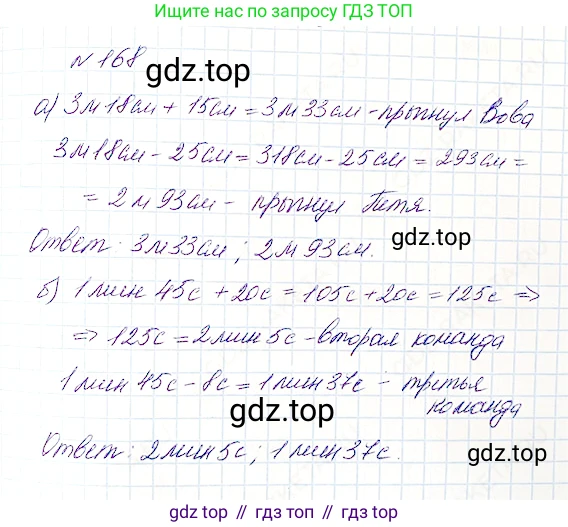 Ищите нас в поиске по запросу ГДЗ ТОП
№168
gdz.top
а) 3м 18см + 15см = 3м 33см - прыгнул Вова
3м 18см - 25см = 318см - 25см = 293см =
= 2м 93см - прыгнул Петя.
gdz.top
Ответ: 3м 33см; 2м 93см.
б) 1 мин 45с + 20с = 105с + 20с = 125с ⇒
⇒ 125с = 2мин 5с - вторая команда
1 мин 45с - 8с = 1мин 37с - третья
команда
gdz.top
Ответ: 2мин 5с; 1мин 37с.
gdz.top // gdz.top // gdz.top // gdz.top